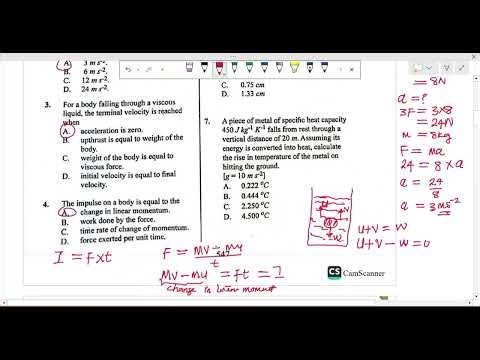 A. 3 m s-2.
B. 6 m s-2.
C. 12 m s-2.
D. 24 m s-2.
3. For a body falling through a viscous
liquid, the terminal velocity is reached
when
A. acceleration is zero.
B. upthrust is equal to weight of the
body.
C. weight of the body is equal to
viscous force.
D. initial velocity is equal to final
velocity.
4. The impulse on a body is equal to the
A. change in linear momentum.
B. work done by the force.
C. time rate of change of momentum.
D. force exerted per unit time.
I = f x t
C. 0.75 cm
D. 1.33 cm
7. A piece of metal of specific heat capacity
450 J kg-1 K-1 falls from rest through a
vertical distance of 20 m. Assuming its
energy is converted into heat, calculate
the rise in temperature of the metal on
hitting the ground.
[g = 10 m s-2]
A. 0.222 °C
B. 0.444 °C
C. 2.250 °C
D. 4.500 °C
F = MV - MU
t
MV - MU = ft = I
change in linear moment
= 8N
a = ?
3F = 3x8
= 24N
m = 8kg
F = ma
24 = 8 x a
a = 24
8
a = 3 ms-2
U+V = W
U+V - W = 0
CS CamScanner